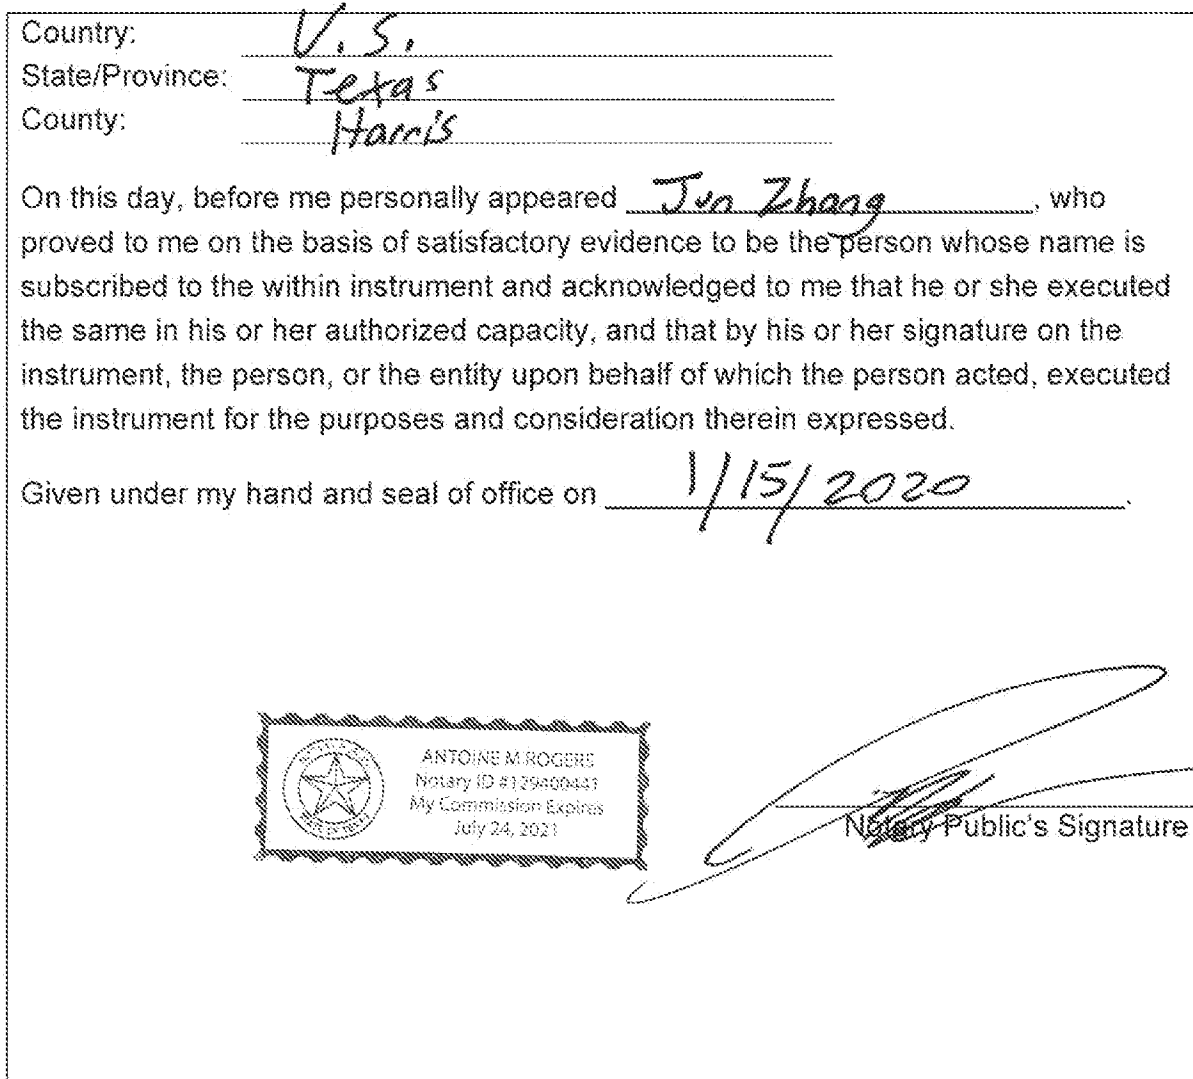 Country: U.S.
State/Province: Texas
County: Harris
On this day, before me personally appeared Jun Zhang, who
proved to me on the basis of satisfactory evidence to be the person whose name is
subscribed to the within instrument and acknowledged to me that he or she executed
the same in his or her authorized capacity, and that by his or her signature on the
instrument, the person, or the entity upon behalf of which the person acted, executed
the instrument for the purposes and consideration therein expressed.
Given under my hand and seal of office on 1/15/2020.
ANTOINE M ROGERS
Notary ID #129400441
My Commission Expires
July 24, 2021
Notary Public's Signature